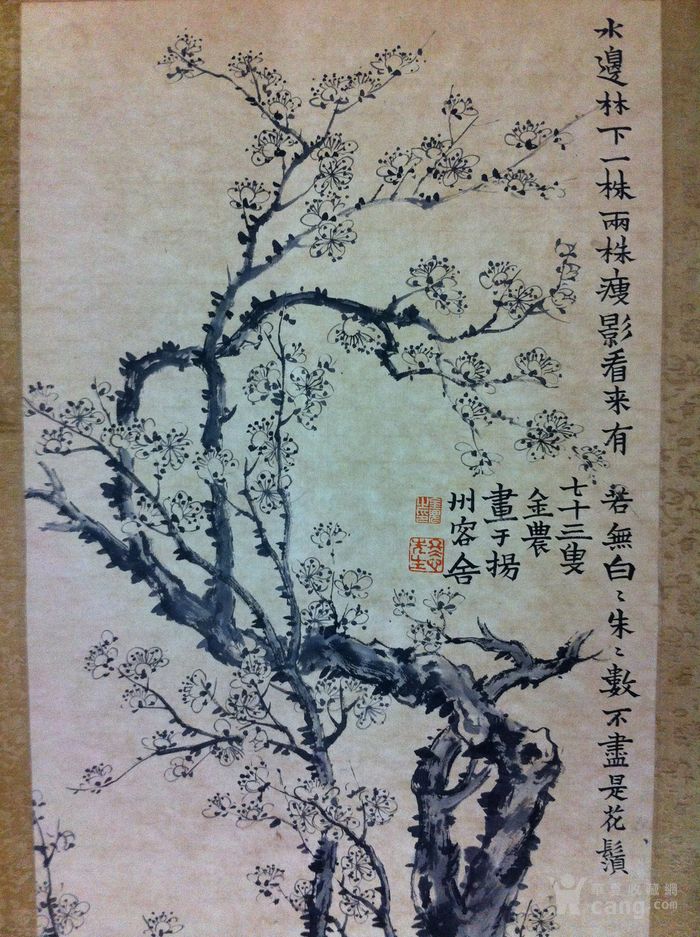 水邊林下一株兩株瘦影看来有若無白〻朱〻數不盡是花鬚
七十三叟
金農
畫于揚
州客舍
華夏收藏網
cang.com